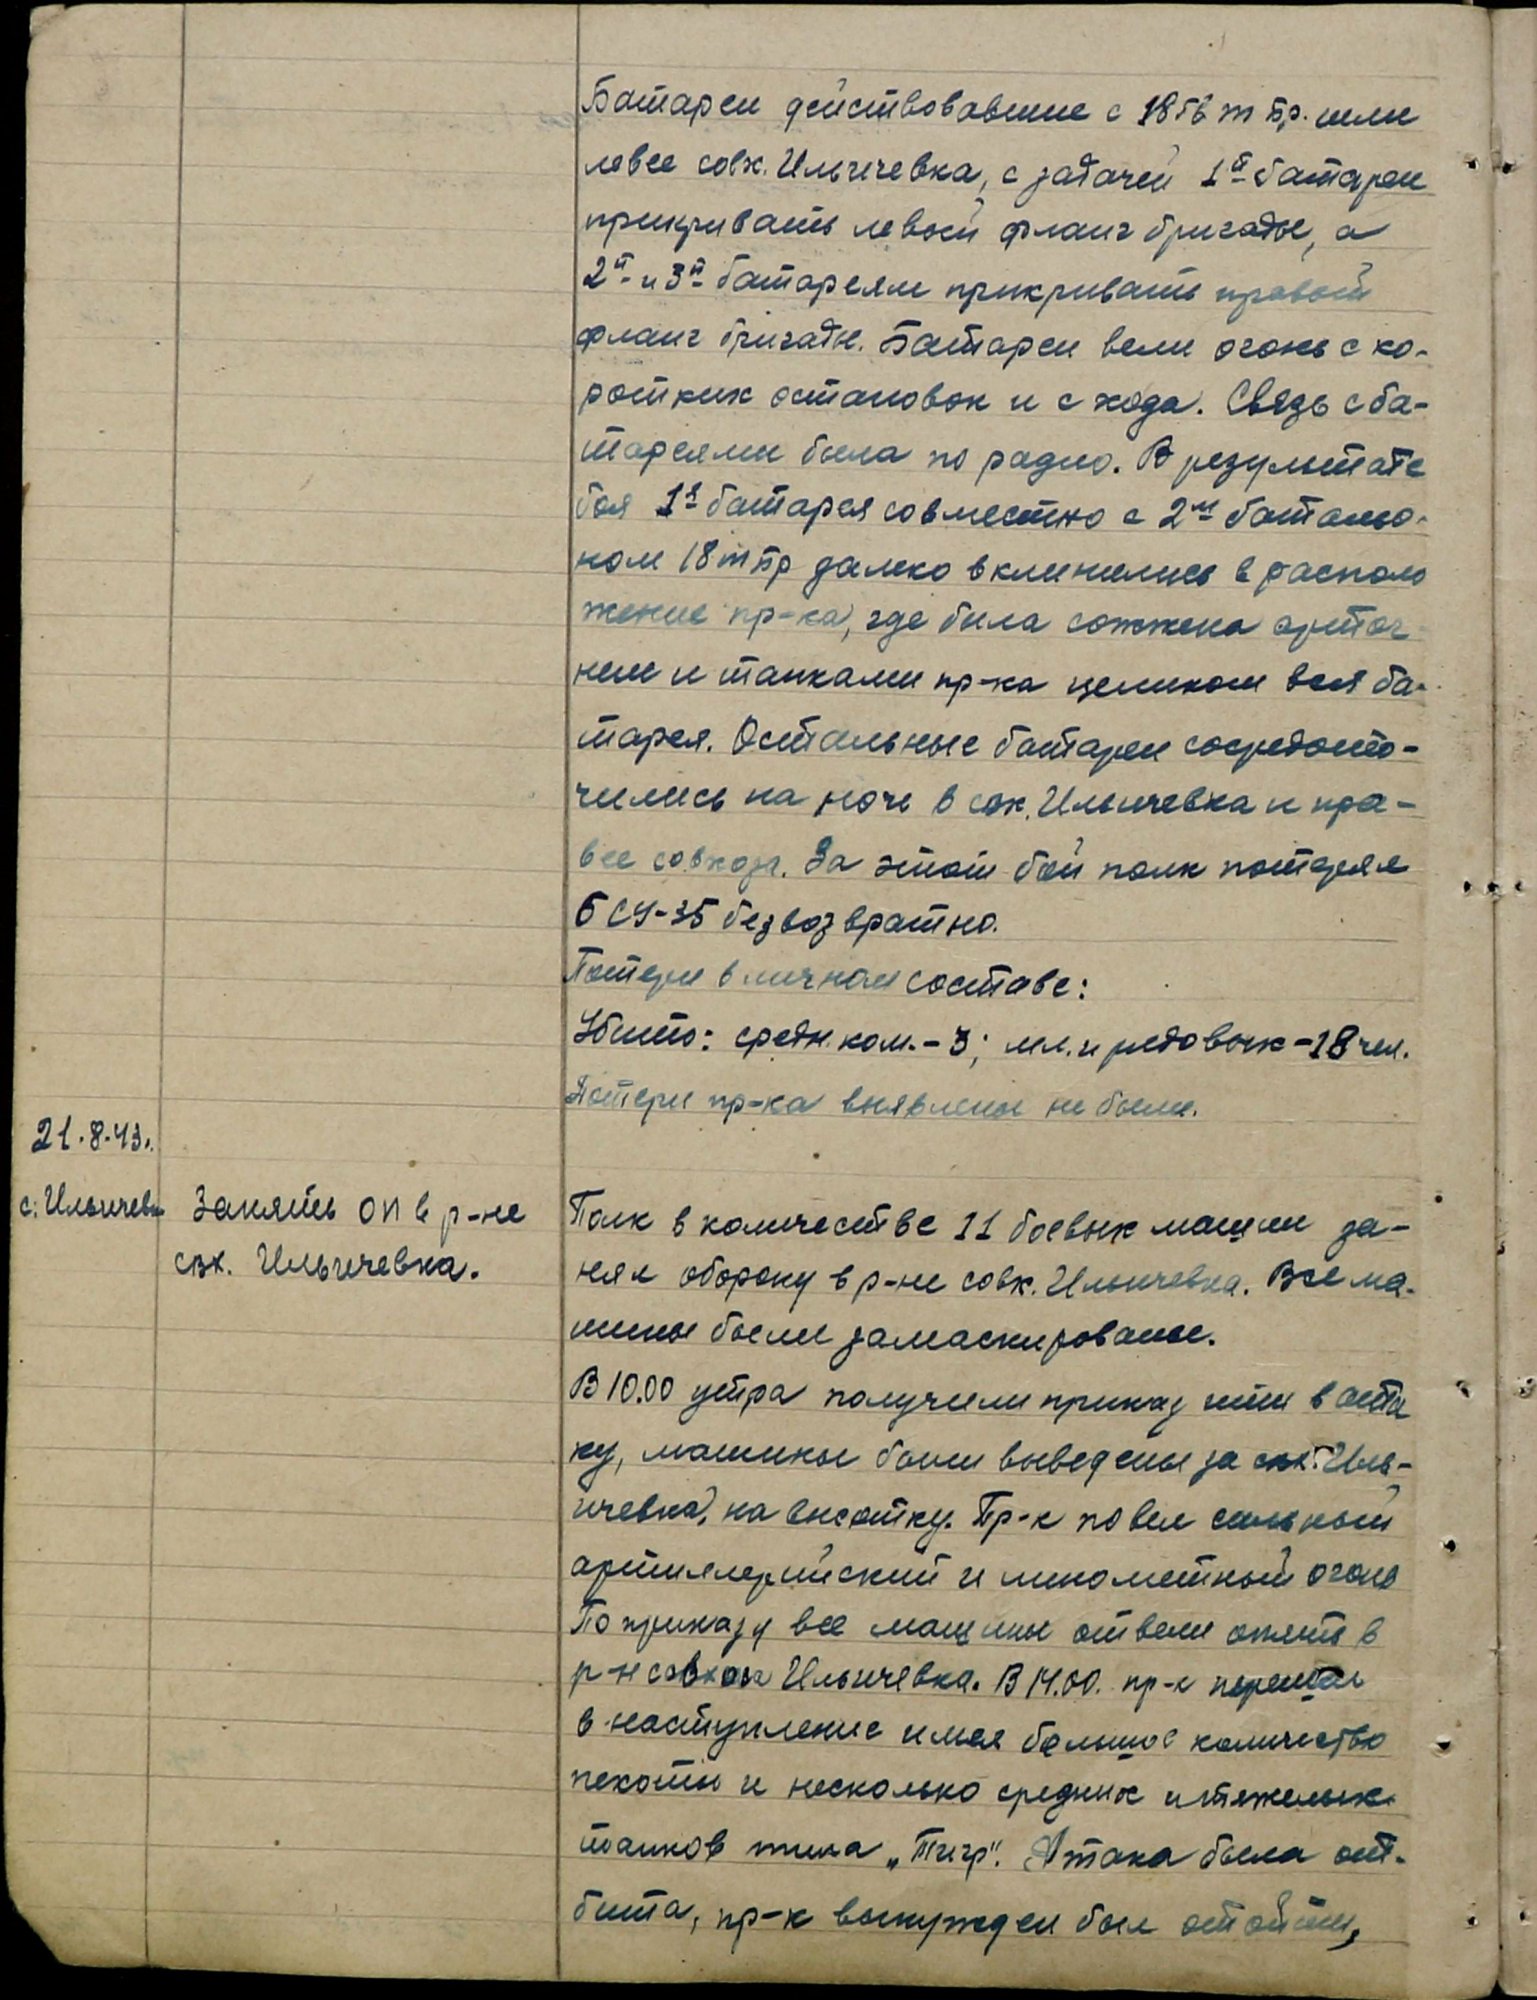 Батареи действовавшие с 18 гв т бр. шли
левее совх. Ильичевка, с задачей 1й батареи
прикривать левый фланг бригады, а
2й и 3й батареям прикривать правый
фланг бригады. Батареи вели огонь с ко-
ротких остановок и с хода. Связь с ба-
тареями была по радио. В результате
боя 1я батарея совместно с 2м батальо-
ном 18 т бр далеко вклинились в располо
жение пр-ка, где была сожжена артог-
нем и танками пр-ка целиком вся ба-
тарея. Остальные батареи сосредото-
чились на ночь в свх. Ильичевка и пра-
вее совхоза. За этот бой полк потерял
СУ-85 безвозвратно.
Потери в личном составе:
Убито: средн. ком. - 3; мл. и рядовых - 18 чел.
Потери пр-ка выявлены не были.
21.8.43.
с. Ильичевк
Занять ОП в р-не
свх. Ильичевка.
Полк в количестве 11 боевых машин за-
нял оборону в р-не совх. Ильичевка. Все ма-
шины были замаскированы.
В 10.00 утра получили приказ итти в ата
ку, машины были выведены за свх. Иль-
ичевка, на высотку. Пр-к повел сильный
артиллерийский и минометный огонь
По приказу все машины отвели опять в
р-н совхоза Ильичевка. В 14.00. пр-к перешел
в наступление имея большое количество
пехоты и несколько средних и тяжелых
танков типа „Тигр". Атака была от-
бита, пр-к вынужден был отойти,